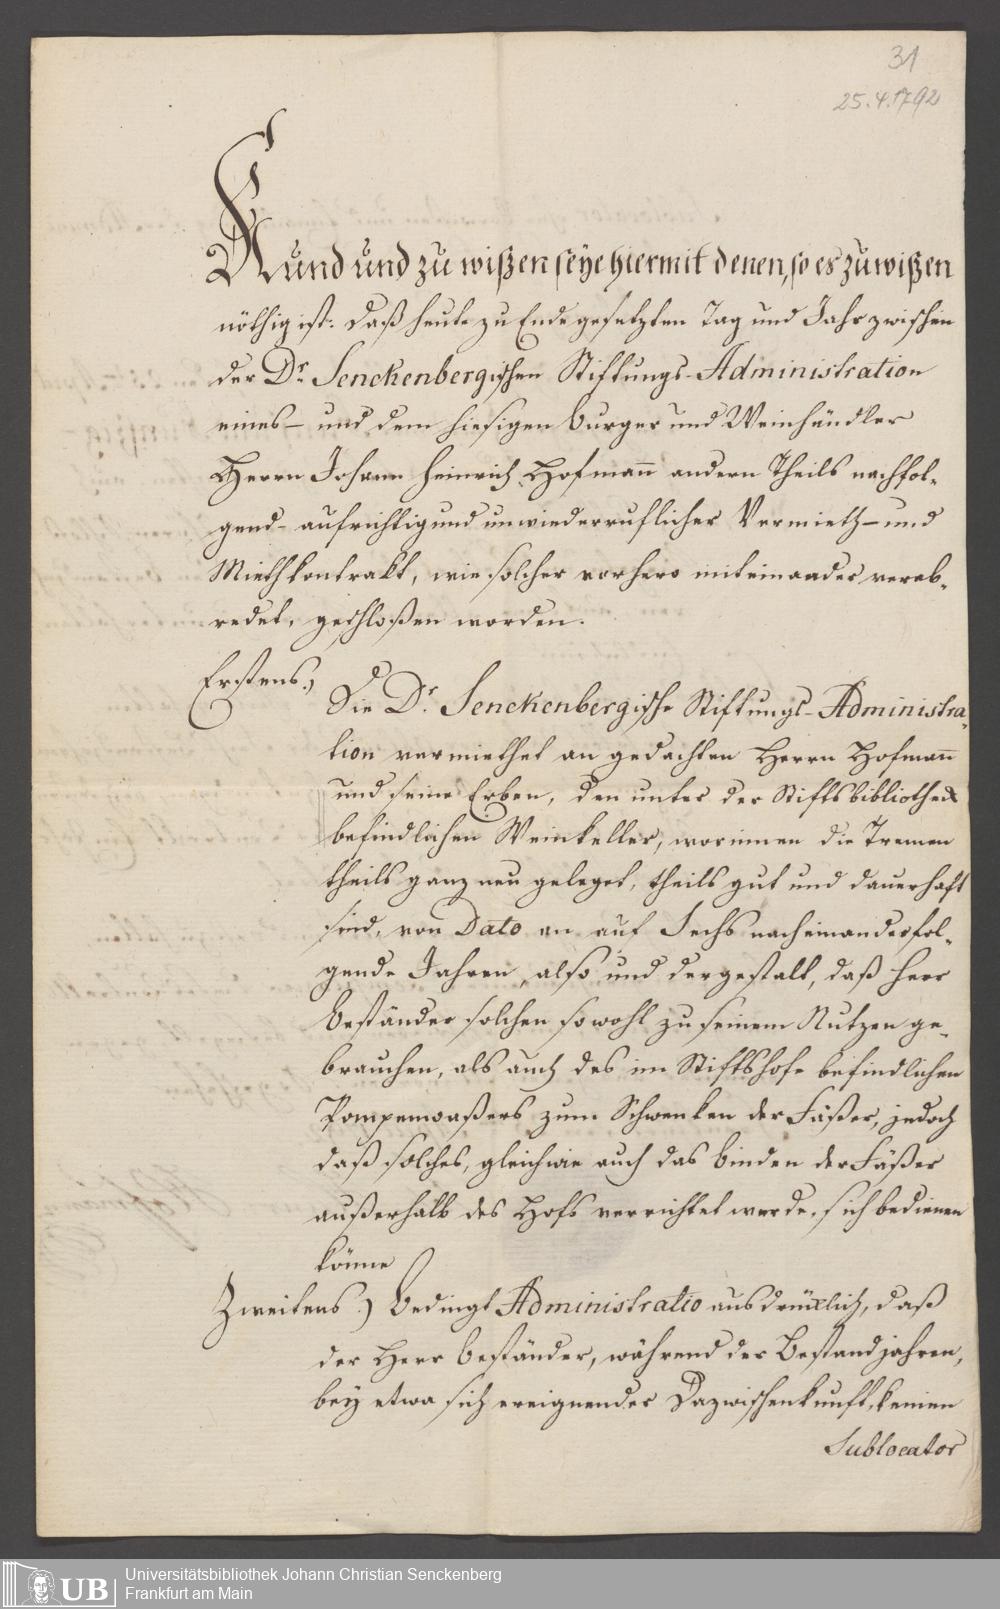 31
25.4.1792
Kund und zu wißen seye hiermit denen, so es zu wißen
nöthig ist: Daß heute zu Ende gesetzten Tag und Jahr zwischen
der Dr. Senckenbergischen Stiftungs-Administration
eines- und dem hiesigen burger und Weinhändler
Herrn Johann Heinrich Hofmann andern Theils nachfol-
gend- aufrichtig und unwiederruflicher Vermieth- und
Miethkontrakt, wie solcher vorhero miteinander verab-
redet, geschloßen worden.
Erstens.) Die Dr. Senckenbergische Stiftungs-Administra-
tion vermiethet an gedachten Herrn Hofmann
und seine Erben, den unter der Stiftsbibliotheck
befindlichen Weinkeller, worinnen die Tremen
theils ganz neu geleget, theils gut und dauerhaft
sind, von Dato an auf Sechs nacheinanderfol-
gende Jahren, also und dergestalt, daß Herr
beständer solchen sowohl zu seinem Nutzen ge-
brauchen, als auch des im Stiftshofe befindlichen
Pompenwaßers zum Schwenken der Fäßer, jedoch
daß solches, gleichwie auch das binden der Fäßer
außerhalb des Hofs verrichtet werde, sich bedienen
könne
Zweitens.) bedingt Administratio ausdrücklich, daß
der Herr beständer, während der Bestandjahren,
bey etwa sich ereignender Dazwischenkunft, keinen
Sublocator
UB
Universitätsbibliothek Johann Christian Senckenberg
Frankfurt am Main